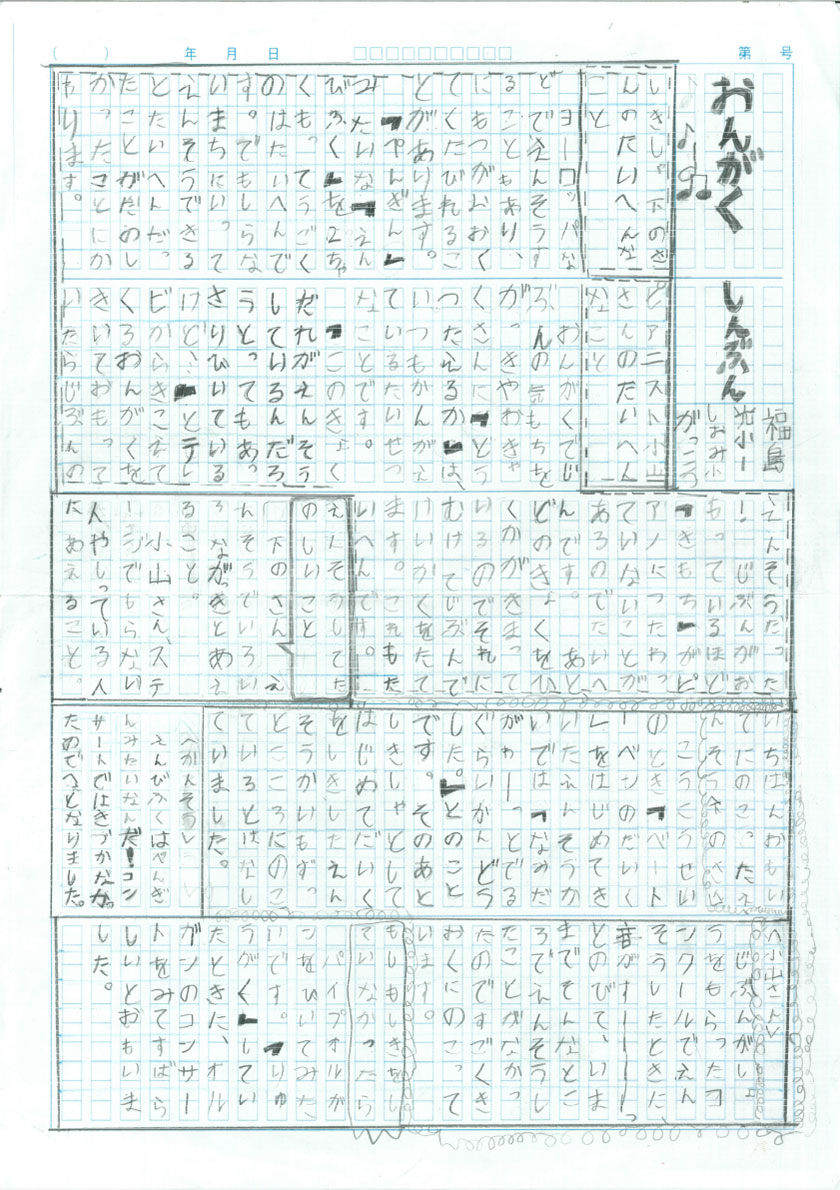 （　　）　年　月　日　□□□□□□□□□□　第　号
おんがく
しんぶん
福島
しおみ小
がっこう
いきしゃ下のさ
んのたいへんな
こと
ヨーロッパな
どでえんそうす
ることもあり、
にもつがおおく
てくたびれるこ
とがあります。
「やんぎん」
みたいな「えん
びふく」を2ちゃ
くもってうごく
のはたいへんで
す。でもしらな
いまちにいって
えんそうできる
とたいへんだっ
たことがたのし
かったことにか
わります。
ピアニスト小山
さんのたいへん
なこと
おんがくでじ
ぶんの気もちを
がっきやおきゃ
くさんに「どう
つたえるか」は、
いつもかんがえ
ているたいせつ
なことです。
「このきょく
だれがえんそう
しているんだろ
うとってもあっ
さりひいている
けど…」とテレ
ビからきこえて
くるおんがくを
きいておもって
いたらじぶんの
えんそうだった
！じぶんがお
もっているほど
「きもち」がピ
アノにつたわっ
ていないことが
あるのでたいへ
んです。あと
どのきょくをひ
くかがきまって
いるのでそれに
むけてじぶんで
けいかくをたて
ます。これもた
いへんです。
えんそうしてた
のしいこと
下のさんえ
んそうでいろい
ろながっきとあえ
ること。
小山さん、ステ
ージでもらない
人やしっている人
にあえること。
いちばんおもい
でにのこったえ
んそう下のさん
こうこうせい
のとき「ベート
ーベンのだいく」
をはじめてき
いたえんそうか
いでは「なみだ
がやーっとでる
ぐらいかんどう
した。」とのこと
です。そのあと
しきしゃとして
はじめてだいく
をしきしたえん
そうかいもずっ
とこころにのこ
っているとはなし
ていました。
えんびふくはやんぎ
んみたいなんだ！コン
サートではきづかなかっ
たのでへっとなりました。
＜小山さん＞
じぶんがしょ
うをもらったコ
ンクールでえん
そうしたときに、
音がすーーーっ
とのびて、いま
までそんなとこ
ろでえんそうし
たことがなかっ
たのですごくき
おくにのこって
います。
もしもしきをし
ていなかったら
パイプオルガ
ンをひいてみた
いです。「りゅ
うがく」してい
たときに、オル
ガンのコンサー
トをみてすばら
しいとおもいま
した。